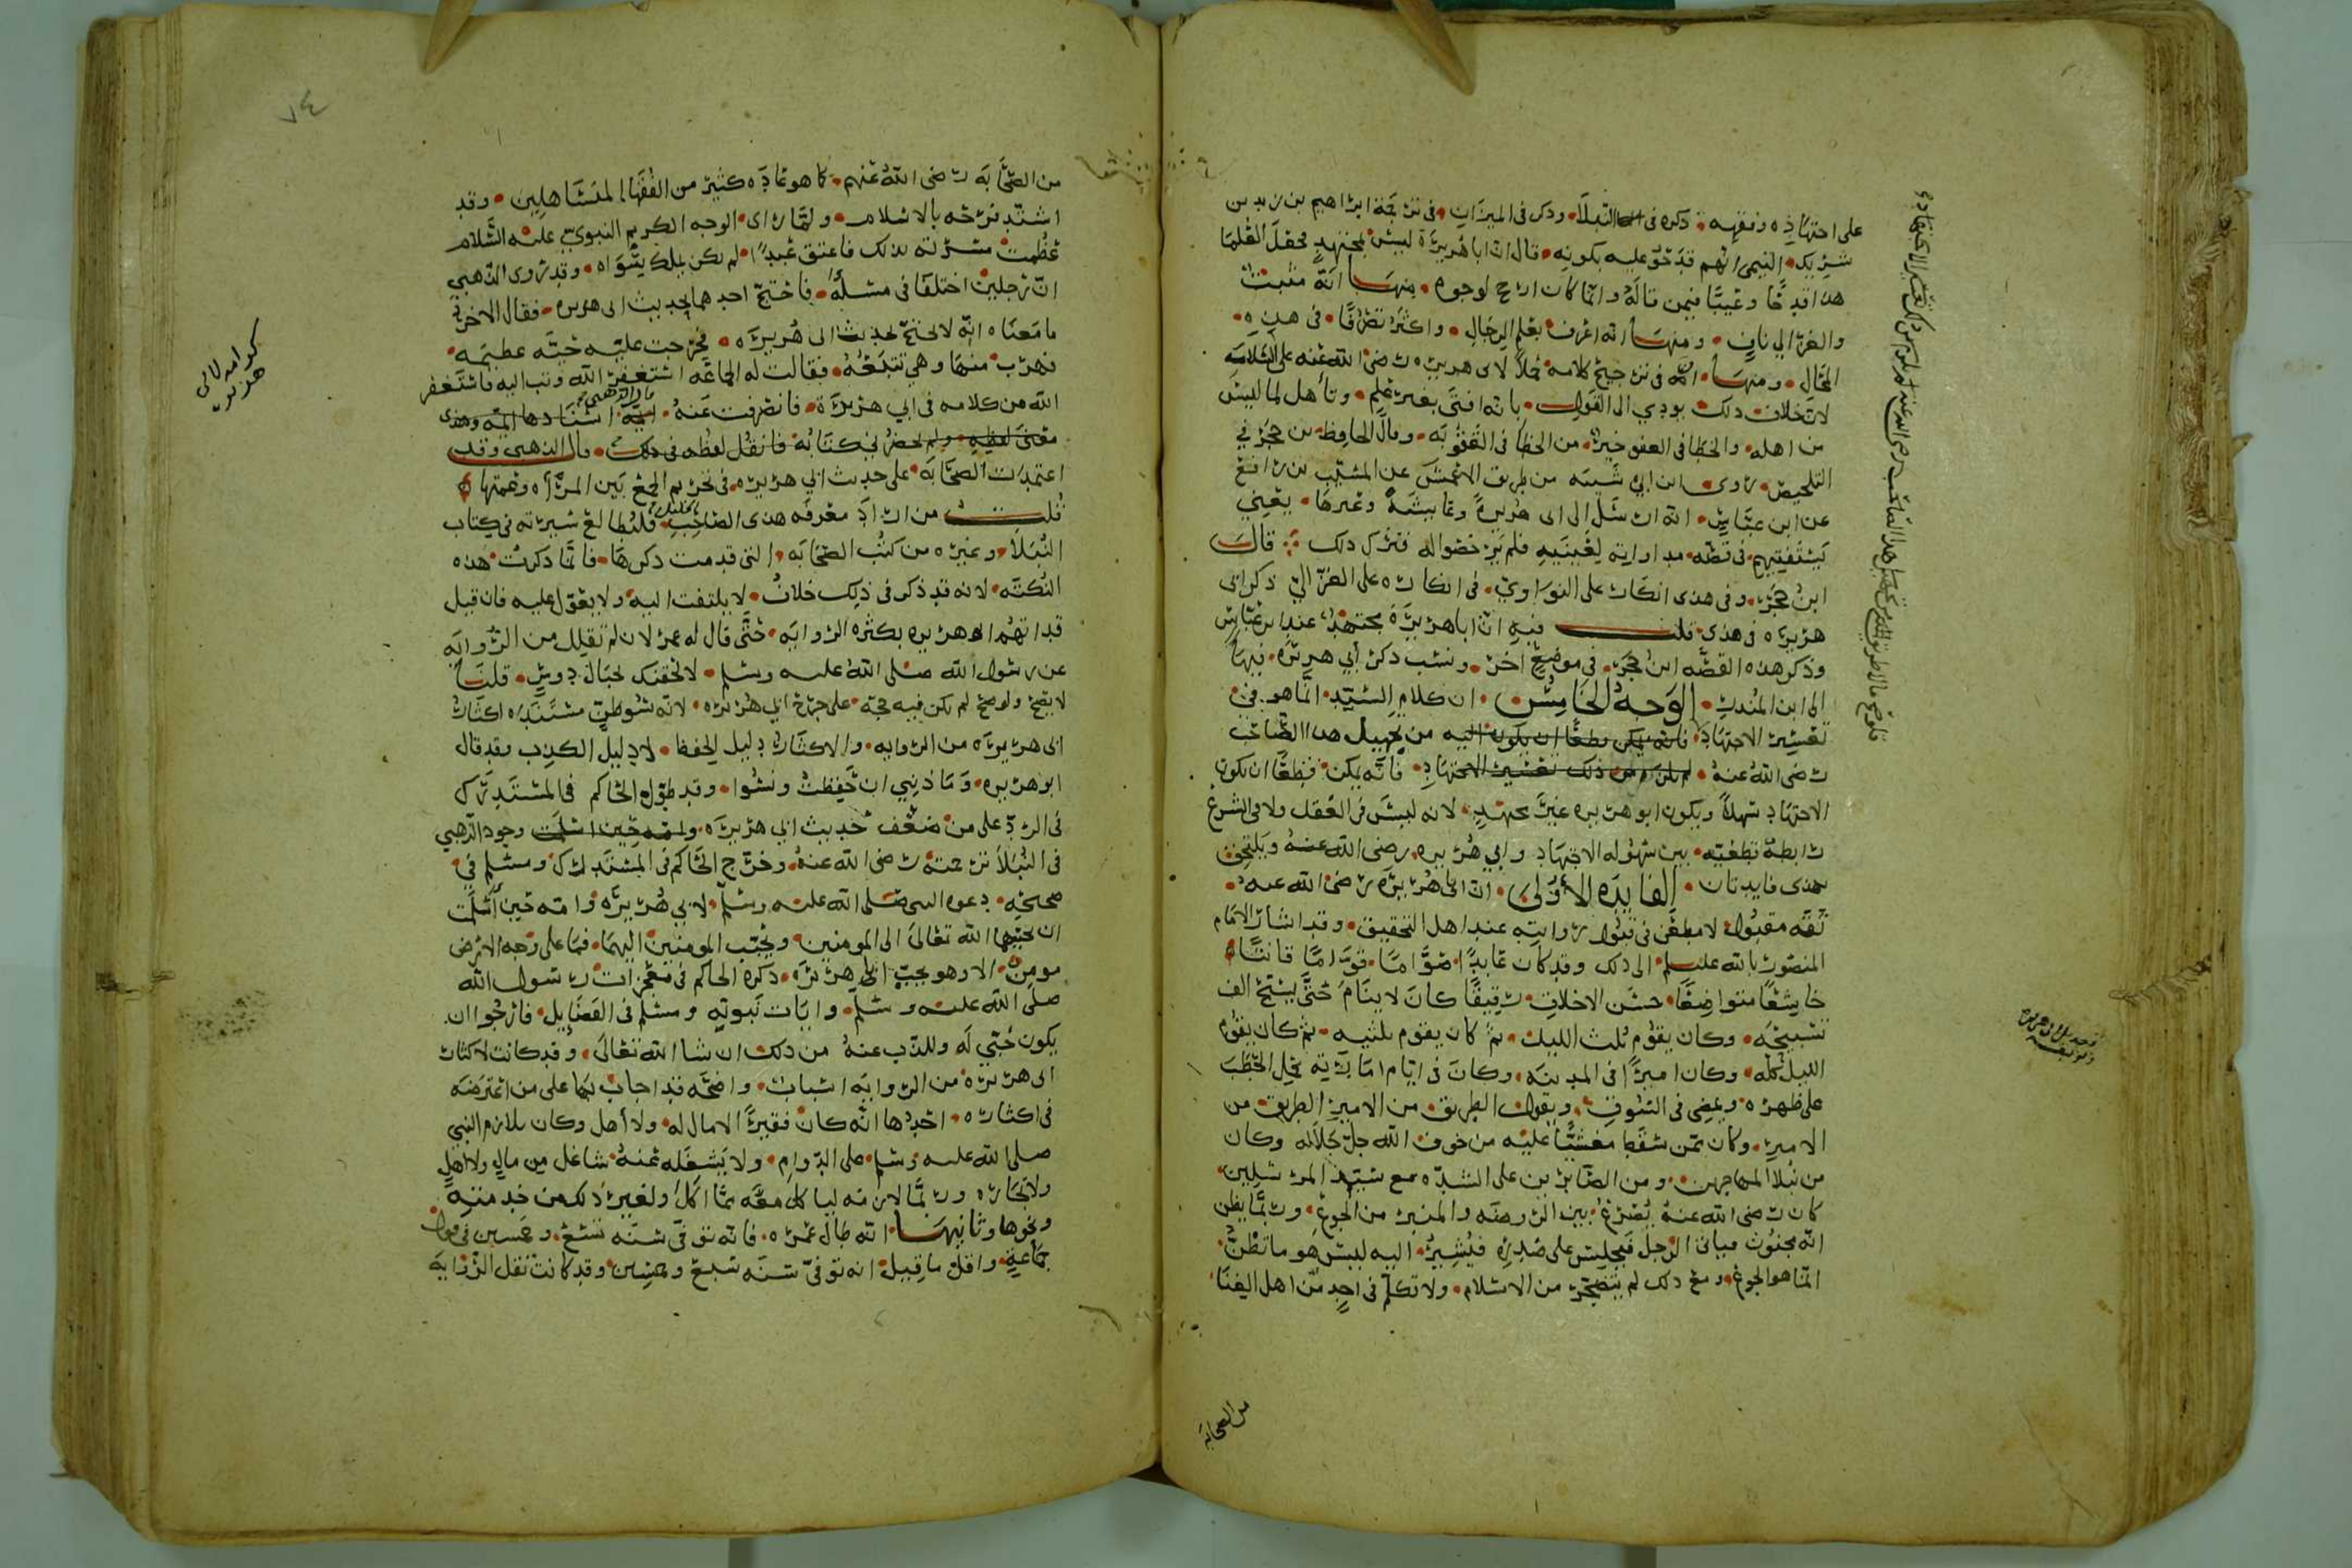 على اجتهاده وفقهه ذكره في النبلا وذكر في الميزان في ترجمة ابراهيم بن يزيد بن
شريك التيمي انهم قدحوا عليه بكونه قال ان ابا هريرة ليس بمجتهد فجعل العلما
هذا قدحا وعيبا فيمن قاله وانما كان ارجح لوجوه منها انه مثبت
والغزالي نافٍ ومنها انه اعرف بعلم الرجال واكثر تصرفا في هذه
المحال ومنها انه في ترجيح كلامه حملا لابي هريرة رضي الله عنه على السلامة
لان خلاف ذلك يودي الى القول بانه افتى بغير علم وتأهل لما ليس
من اهله والخطا في العفو خير من الخطا في العقوبه وقال الحافظ بن حجر في
التلخيص روى ابن ابي شيبه من طريق الاعمش عن المسيب بن رافع
عن ابن عباس انه ارسل الى ابي هريرة وعايشة وغيرها يعني
يستفتيهم في قطه مداواته لعينيه فلم يرخصوا له فترك ذلك قال
ابن حجر وفي هذى انكار على النواوي في انكاره على الغزالي ذكر ابي
هريره في هذى قلت فيه ان ابا هريرة مجتهد عند ابن عباس
وذكر هذه القصه ابن حجر في موضع اخر ونسب ذكر أبي هريره فيها
الى ابن المنذر الوجه الخامس ان كلام السيد انما هو في
تعسير الاجتهاد فانه يمكن قطعا ان يكون اليه من تجهيل هذا الصاحب
رضي الله عنه لم يلزم من ذلك تعسير الاجتهاد فانه يمكن قطعا ان يكون
الاجتهاد سهلا ويكون ابو هريره غير مجتهد لانه ليس في العقل ولا في الشرع
رابطة قطعيه بين سهوله الاجتهاد وابي هريره رضي الله عنه ويلتحق
بهذى فايدتان الفايده الأولى ان ابا هريره رضي الله عنه
ثقه مقبول لا مطعن في قبول روايته عند اهل التحقيق وقد اشار الامام
المنصور بالله عليه السلم الى ذلك وقد كان عابدا صواما قواما قانتا
خاشعا متواضعا حسن الاخلاق رقيقا كان لاينام حتى يسبح الف
تسبيحه وكان يقوم ثلث الليل ثم كان يقوم ثلثيه ثم كان يقوم
الليل كله وكان اميرا في المدينه وكان في ايام امارته يحمل الحطب
على ظهره ويمضي في السوق ويقول الطريق من الامير الطريق من
الامير وكان ممن سقط مغشيا عليه من خوف الله جل جلاله وكان
من نبلا المهاجرين ومن الصابرين على الشده مع سيد المرسلين
كان رضي الله عنه يصرع بين الروضه والمنبر من الجوع وربما يظن
انه مجنون فياتي الرجل فيجلس على صدره فيشير اليه ليس هو ما تظن
انما هو الجوع ومع ذلك لم يتضجر من الاسلام ولا تكلم في احد من اهل الغنا
من الصحابه
من الصحابه رضي الله عنهم كما هو عاده كثير من الفقها المتساهلين وقد
اشتد فرحه بالاسلام ولما راى الوجه الكريم النبوي عليه السلام
عظمت مسرته بذلك فاعتق عبدا لم يكن يملك سواه وقد روى الذهبي
ان رجلين اختلفا في مسله فاحتج احدهما بحديث ابي هريره فقال الاخر
ما معناه انه لا يحتج بحديث ابي هريره فخرجت عليه حيه عظيمه
فهرب منها وهي تتبعه فقالت له الجماعه استغفر الله وتب اليه فاستغفر
الله من كلامه في ابي هريرة فانصرفت عنه قال الذهبي اسنادها ايمه وهذى
معنى لفظه ولم يحضرني كتابه فانقل لفظه في ذلك قال الذهبي وقد
اعتمدت الصحابه على حديث ابي هريره في تحريم الجمع بين المرأه وعمتها
قلت من اراد معرفه هذى الصاحب الجليل فليطالع سيرته في كتاب
النبلا وغيره من كتب الصحابه التي قدمت ذكرها فانما ذكرت هذه
النكته لانه قد ذكر في ذلك خلاف لا يلتفت اليه ولا يعول عليه فان قيل
قد اتهم ابو هريره بكثره الروايه حتى قال له عمر لان لم تقلل من الروايه
عن رسول الله صلى الله عليه وسلم لالحقنك بجبال دوس قلنا
لا يصح ولو صح لم يكن فيه حجه على جرح ابي هريره لانه سوء ظن مستنده اكثار
ابي هريره من الروايه والاكثار دليل الحفظ لا دليل الكذب وقد قال
ابو هريره وما ذنبي ان حفظت ونسوا وقد طول الحاكم في المستدرك
في الرد على من ضعف حديث ابي هريره وامه حين اسلمت وجود الذهبي
في النبلا ترجمته رضي الله عنه وخرج الحاكم في المستدرك ومسلم في
صحيحه دعوه النبي صلى الله عليه وسلم لابي هريره وامه حين اسلمت
ان يحببهما الله تعالى الى المومنين ويحبب المومنين اليهما فما على وجه الارض
مومن الا وهو يحب ابا هريره ذكره الحاكم في معجزات رسول الله
صلى الله عليه وسلم وايات نبوته ومسلم في الفضايل فارجوا ان
يكون حبي له والذب عنه من ذلك ان شا الله تعالى وقد كانت لاكثار
ابي هريره من الروايه اسباب واضحه قد اجاب بها على من اعترضه
في اكثاره احدها انه كان فقيرا لامال له ولا أهل وكان يلازم النبي
صلى الله عليه وسلم على الدوام ولا يشغله عنه شاغل من مال ولا اهل
ولا تجاره وربما لازمه لياكل معه مما اكل ولغير ذلك من خدمته
ونحوها وثانيها انه طال عمره فانه توفي سنه تسع وخمسين في قول
جماعه واقل ما قيل انه توفي سنه سبع وخمسين وقد كانت تقل الروايه
كرامه لابي
هريره
٧٤